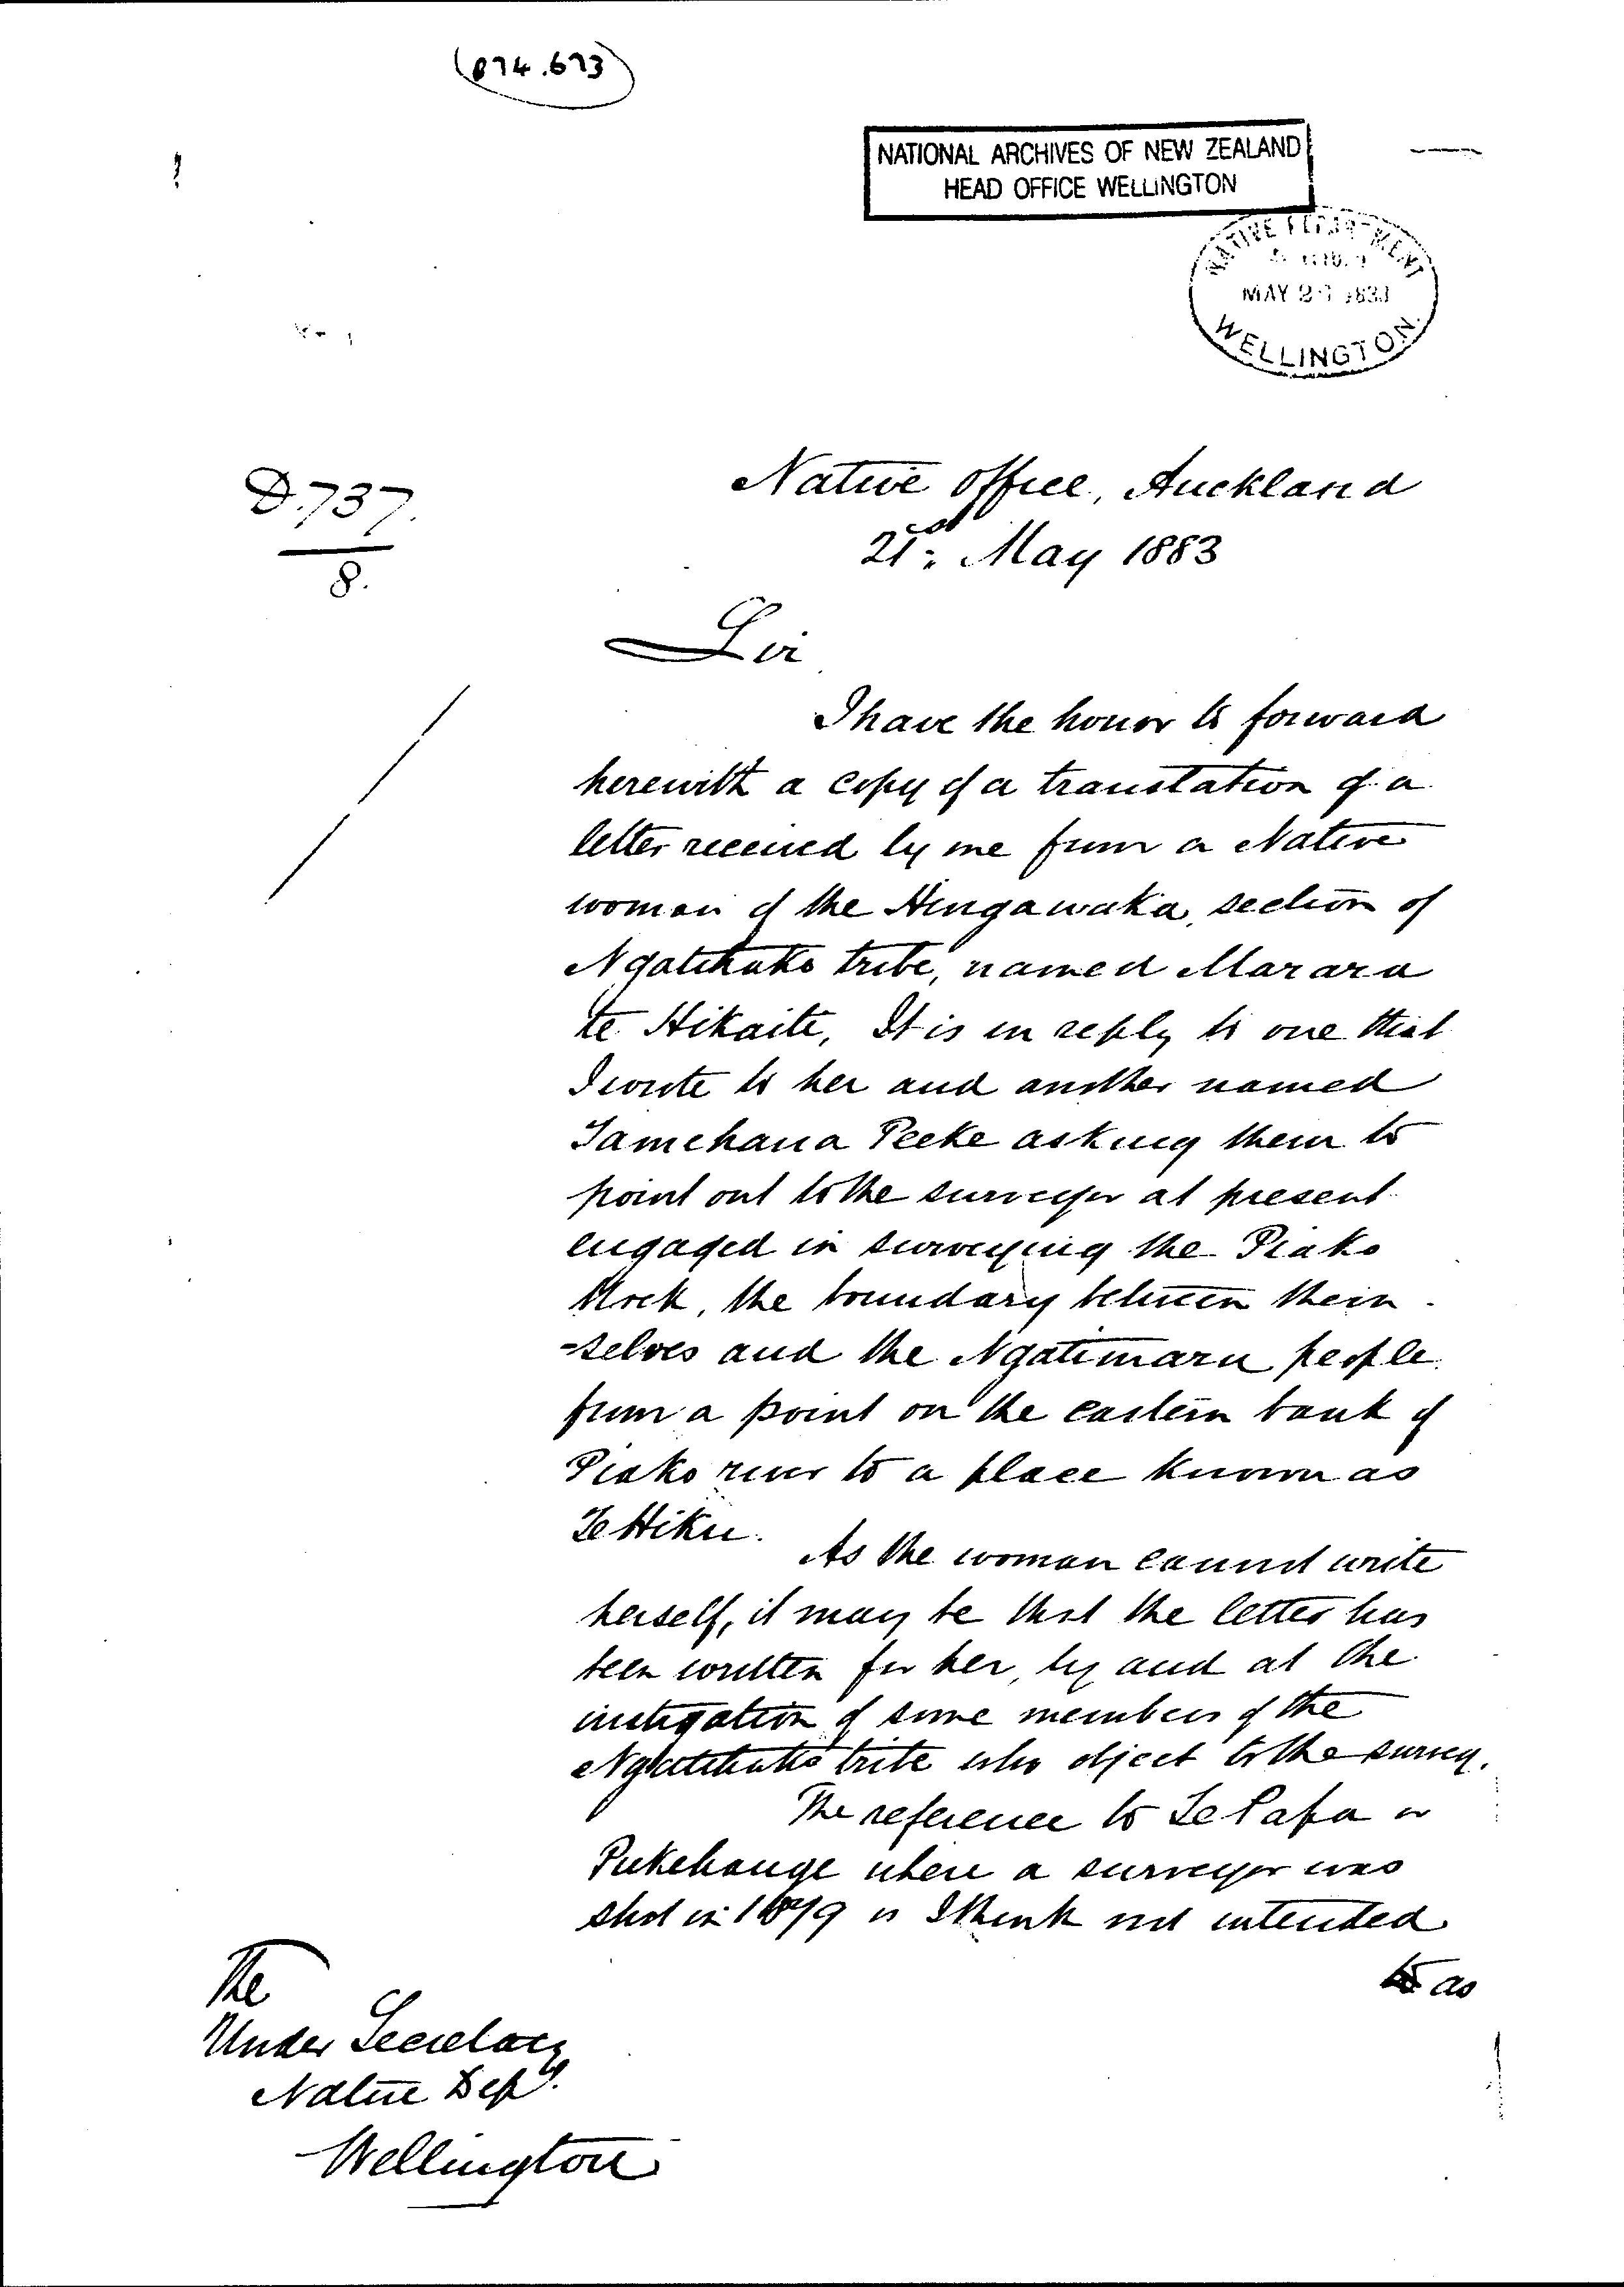 (874.673)
NATIONAL ARCHIVES OF NEW ZEALAND
HEAD OFFICE WELLINGTON
NATIVE DEPARTMENT
MAY 1883
WELLINGTON.
D.737.
8.
Native Office, Auckland
21st May 1883
Sir
I have the honor to forward
herewith a copy of a translation of a
letter received by me from a Native
woman of the Hingawaka, section of
Ngatihako tribe, named Marara
te Hikaite, It is in reply to one that
I wrote to her and another named
Tamehana Peeke asking them to
point out to the surveyor at present
engaged in surveying the Piako
block, the boundary between them
-selves and the Ngatimaru people
from a point on the eastern bank of
Piako river to a place known as
Te Hiku.
As the woman cannot write
herself, it may be that the letter has
been written for her, by and at the
instigation of some members of the
Ngatihako tribe who object to the survey.
The reference to Te Papa or
Pukehange where a surveyor was
shot in 1879 is I think not intended
as
The
Under Secretary
Native Dept.
Wellington